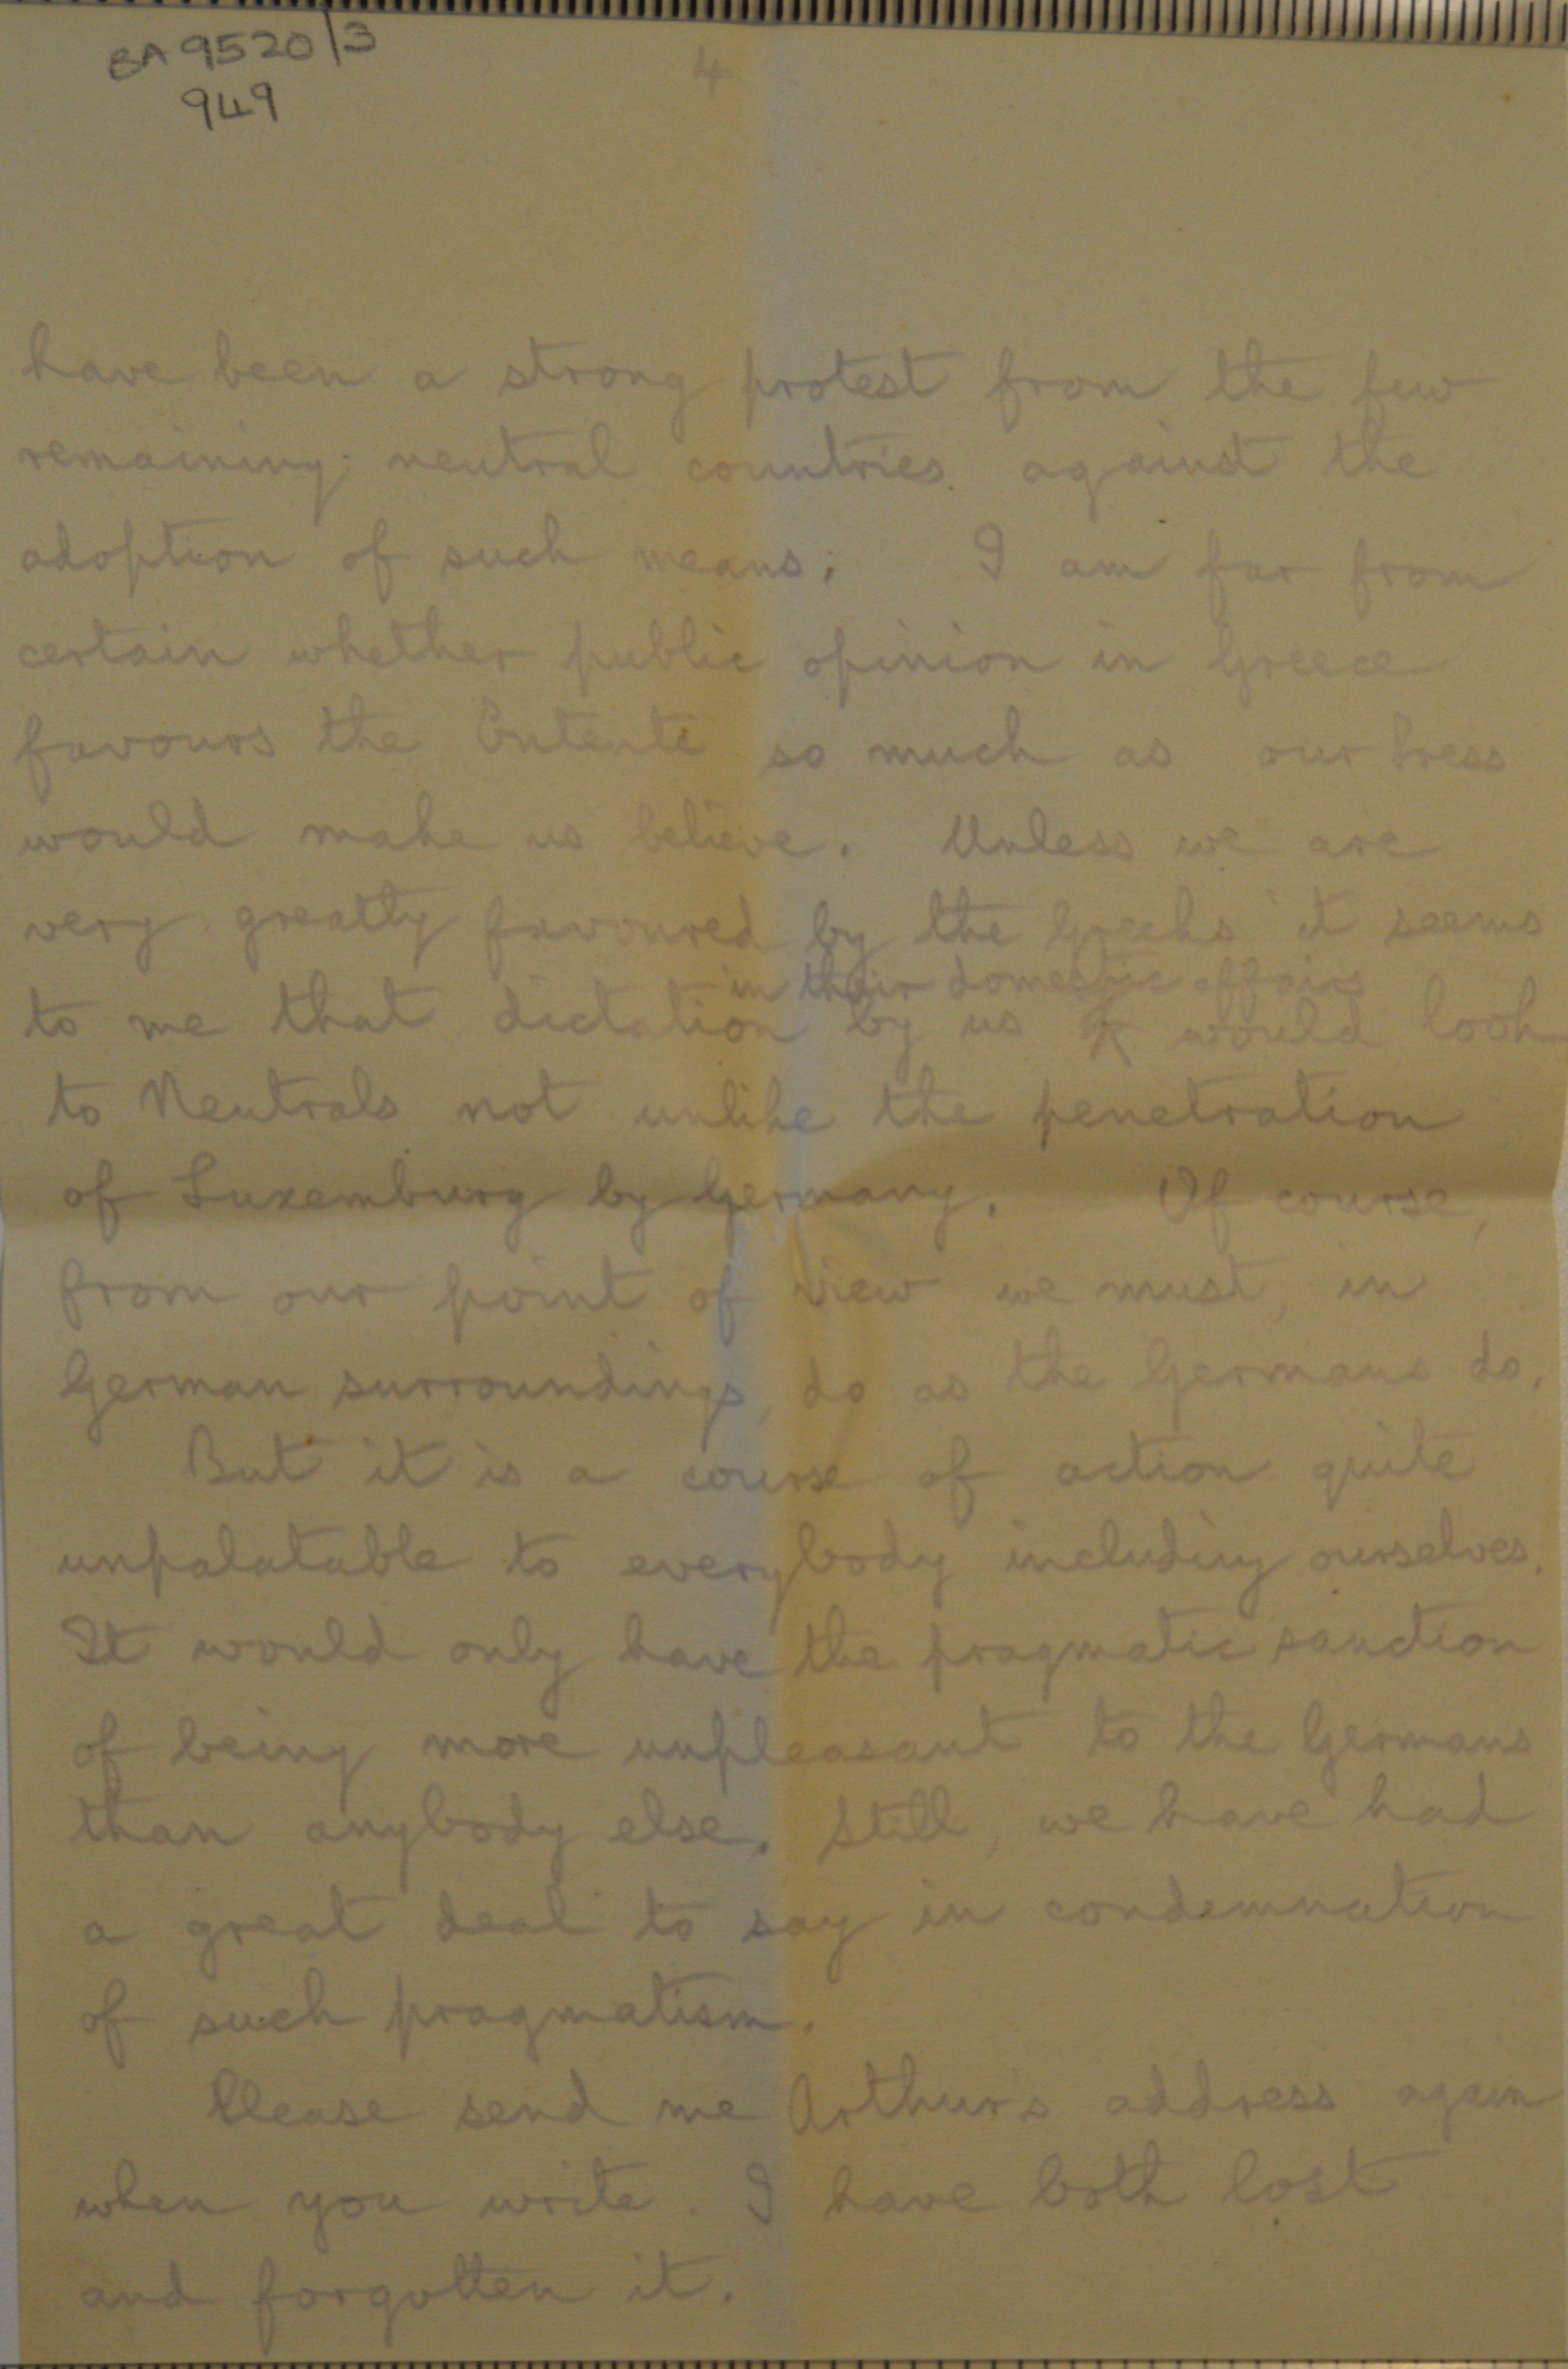 BA 9520/3
949
4
have been a strong protest from the few
remaining neutral countries against the
adoption of such means. I am far from
certain whether public opinion in Greece
favours the Entente so much as our Press
would make us believe. Unless we are
very greatly favoured by the Greeks it seems
in their domestic affairs
to me that dictation by us ⁁ would look
to Neutrals not unlike the penetration
of Luxemburg by Germany. Of course,
from our point of view we must, in
German surroundings, do as the Germans do.
But it is a course of action quite
unpalatable to everybody including ourselves.
It would only have the pragmatic sanction
of being more unpleasant to the Germans
than anybody else. Still, we have had
a great deal to say in condemnation
of such pragmatism.
Please send me Arthur's address again
when you write. I have both lost
and forgotten it.